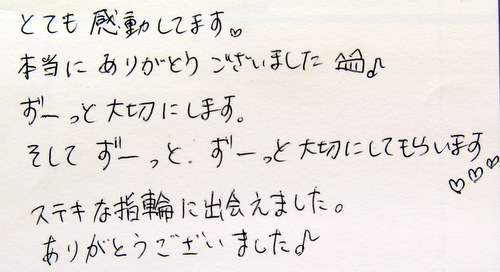 とても感動してます♡
本当にありがとうございました♪
ずーっと大切にします。
そしてずーっと.ずーっと大切にしてもらいます
♡♡♡
ステキな指輪に出会えました。
ありがとうございました♪